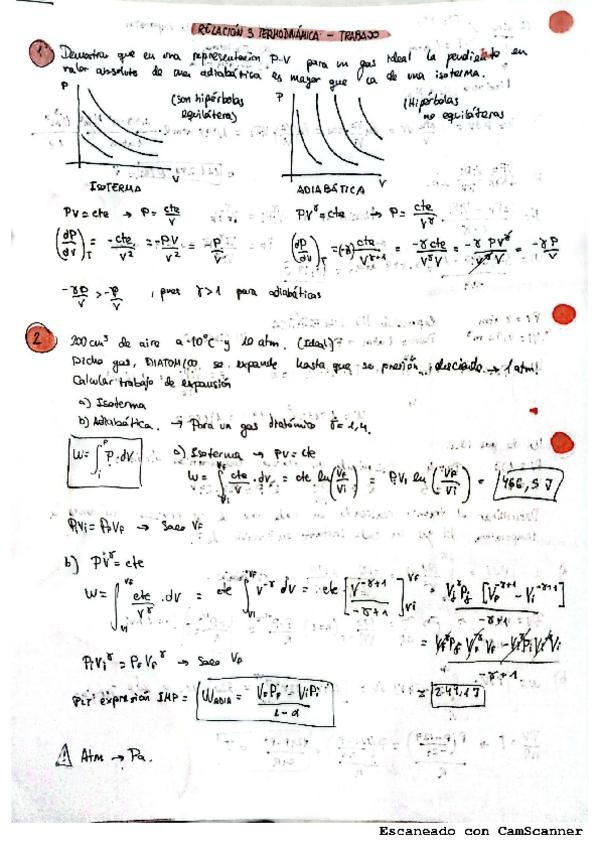 RELACIÓN 3 TERMODINÁMICA - TRABAJO
1. Demostrar que en una representación P-V para un gas ideal la pendiente en
valor absoluto de una adiabática es mayor que la de una isoterma.
P
(Son hipérbolas
equiláteras)
V
ISOTERMA
P
(Hipérbolas
no equiláteras
V
ADIABÁTICA
PV = cte → P = cte/V
(dP/dV)T = -cte/V² = -PV/V² = -P/V
PVᵞ = cte → P = cte/Vᵞ.
(dP/dV)T = (-γ) cte/Vᵞ⁺¹ = -γcte/VᵞV = -γ PVᵞ/VᵞV = -γP/V
-γP/V > -P/V , pues γ>1 para adiabáticas
2 200 cm³ de aire a -10°C y 10 atm. (Ideal)
Dicho gas, DIATÓMICO se expande hasta que su presión, desciende → 1 atm.
Calcular trabajo de expansión
a) Isoterma
b) Adiabática. → Para un gas diatómico γ = 1,4.
W = ∫ P. dV
a) Isoterma → PV = cte
W = ∫ cte/V . dV = cte ln(Vf/Vi) = PiVi ln(Vf/Vi) = 466,5 J
PiVi = PfVf → Saco Vf
b) PVᵞ = cte
W = ∫ cte/Vᵞ . dV = cte ∫ V⁻ᵞ dV = cte [V⁻ᵞ⁺¹/-γ+1] = VfᵞPf [Vf⁻ᵞ⁺¹ - Vi⁻ᵞ⁺¹]/-γ+1
PiViᵞ = PfVfᵞ → Saco Vf
expresión IMP = W ADIA = VfPf - ViPi
= 241,1 J
⚠ Atm → Pa.
Escaneado con CamScanner